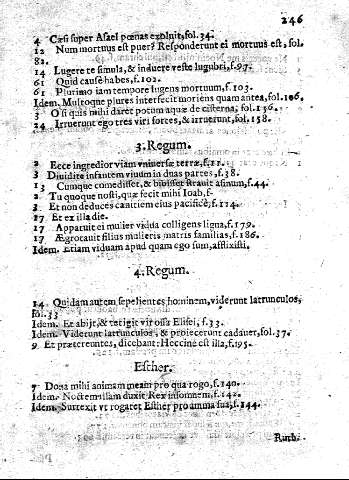 246
4 Cæsi super Asael pœnas exoluit, fol. 34.
12 Num mortuus est puer? Responderunt ei mortuus est, fol.
82.
14 Lugere te simula, & induere veste lugubri, f. 97.
61 Quid causæ habes, f. 102.
61 Plurimo iam tempore lugens mortuum, f. 103.
Idem. Multoque plures interfecit moriens quam antea, fol. 106.
3 O si quis mihi daret potum aquæ de cisterna, fol. 156.
24 Irruerunt ego tres viri fortes, & irruerunt, fol. 158.
3. Regum.
2 Ecce ingredior viam vniuersæ terræ, f. 11.
3 Diuidite infantem viuum in duas partes, f. 38.
13 Cumque comedisset, & bibisset strauit asinum, f. 44.
2 Tu quoque nosti, quæ fecit mihi Ioab, f.
3 Et non deduces canitiem eius pacificè, f. 114.
17 Et ex illa die.
17 Apparuit ei mulier vidua colligens ligna, f. 179.
17 Ægrotauit filius mulieris matris familias, f. 186.
Idem. Etiam viduam apud quam ego sum, afflixisti.
4. Regum.
14 Quidam autem sepelientes hominem, viderunt latrunculos,
fol. 33
Idem. Et abijt, & tetigit vir ossa Elisei, f. 33.
Idem. Viderunt latrunculos, & proiecerunt cadauer, fol. 37.
9 Et prætereuntes, dicebant: Hæccine est illa, f. 195.
Esther.
7 Dona mihi animam meam pro qua rogo, f. 140.
Idem. Noctem illam duxit Rex insomnem, f. 142.
Idem. Surrexit vt rogaret Esther pro anima sua, f. 144.
Ruth.